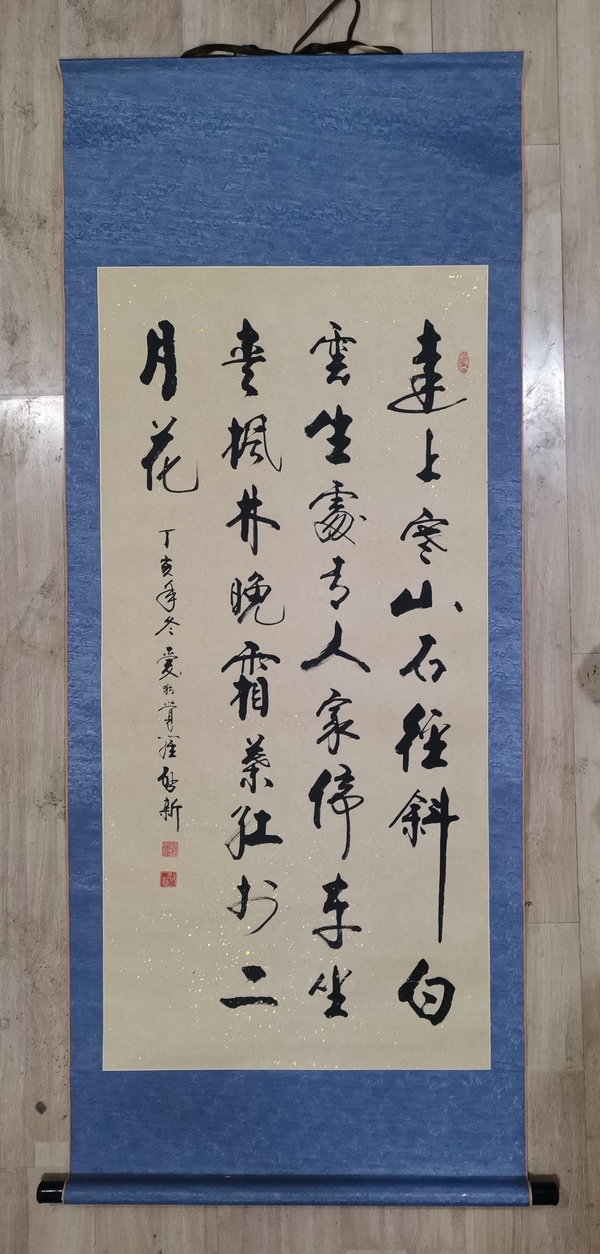 遠上寒山石徑斜白
雲生處有人家停車坐
愛楓林晚霜葉紅於二
月花
丁亥年冬 於 新